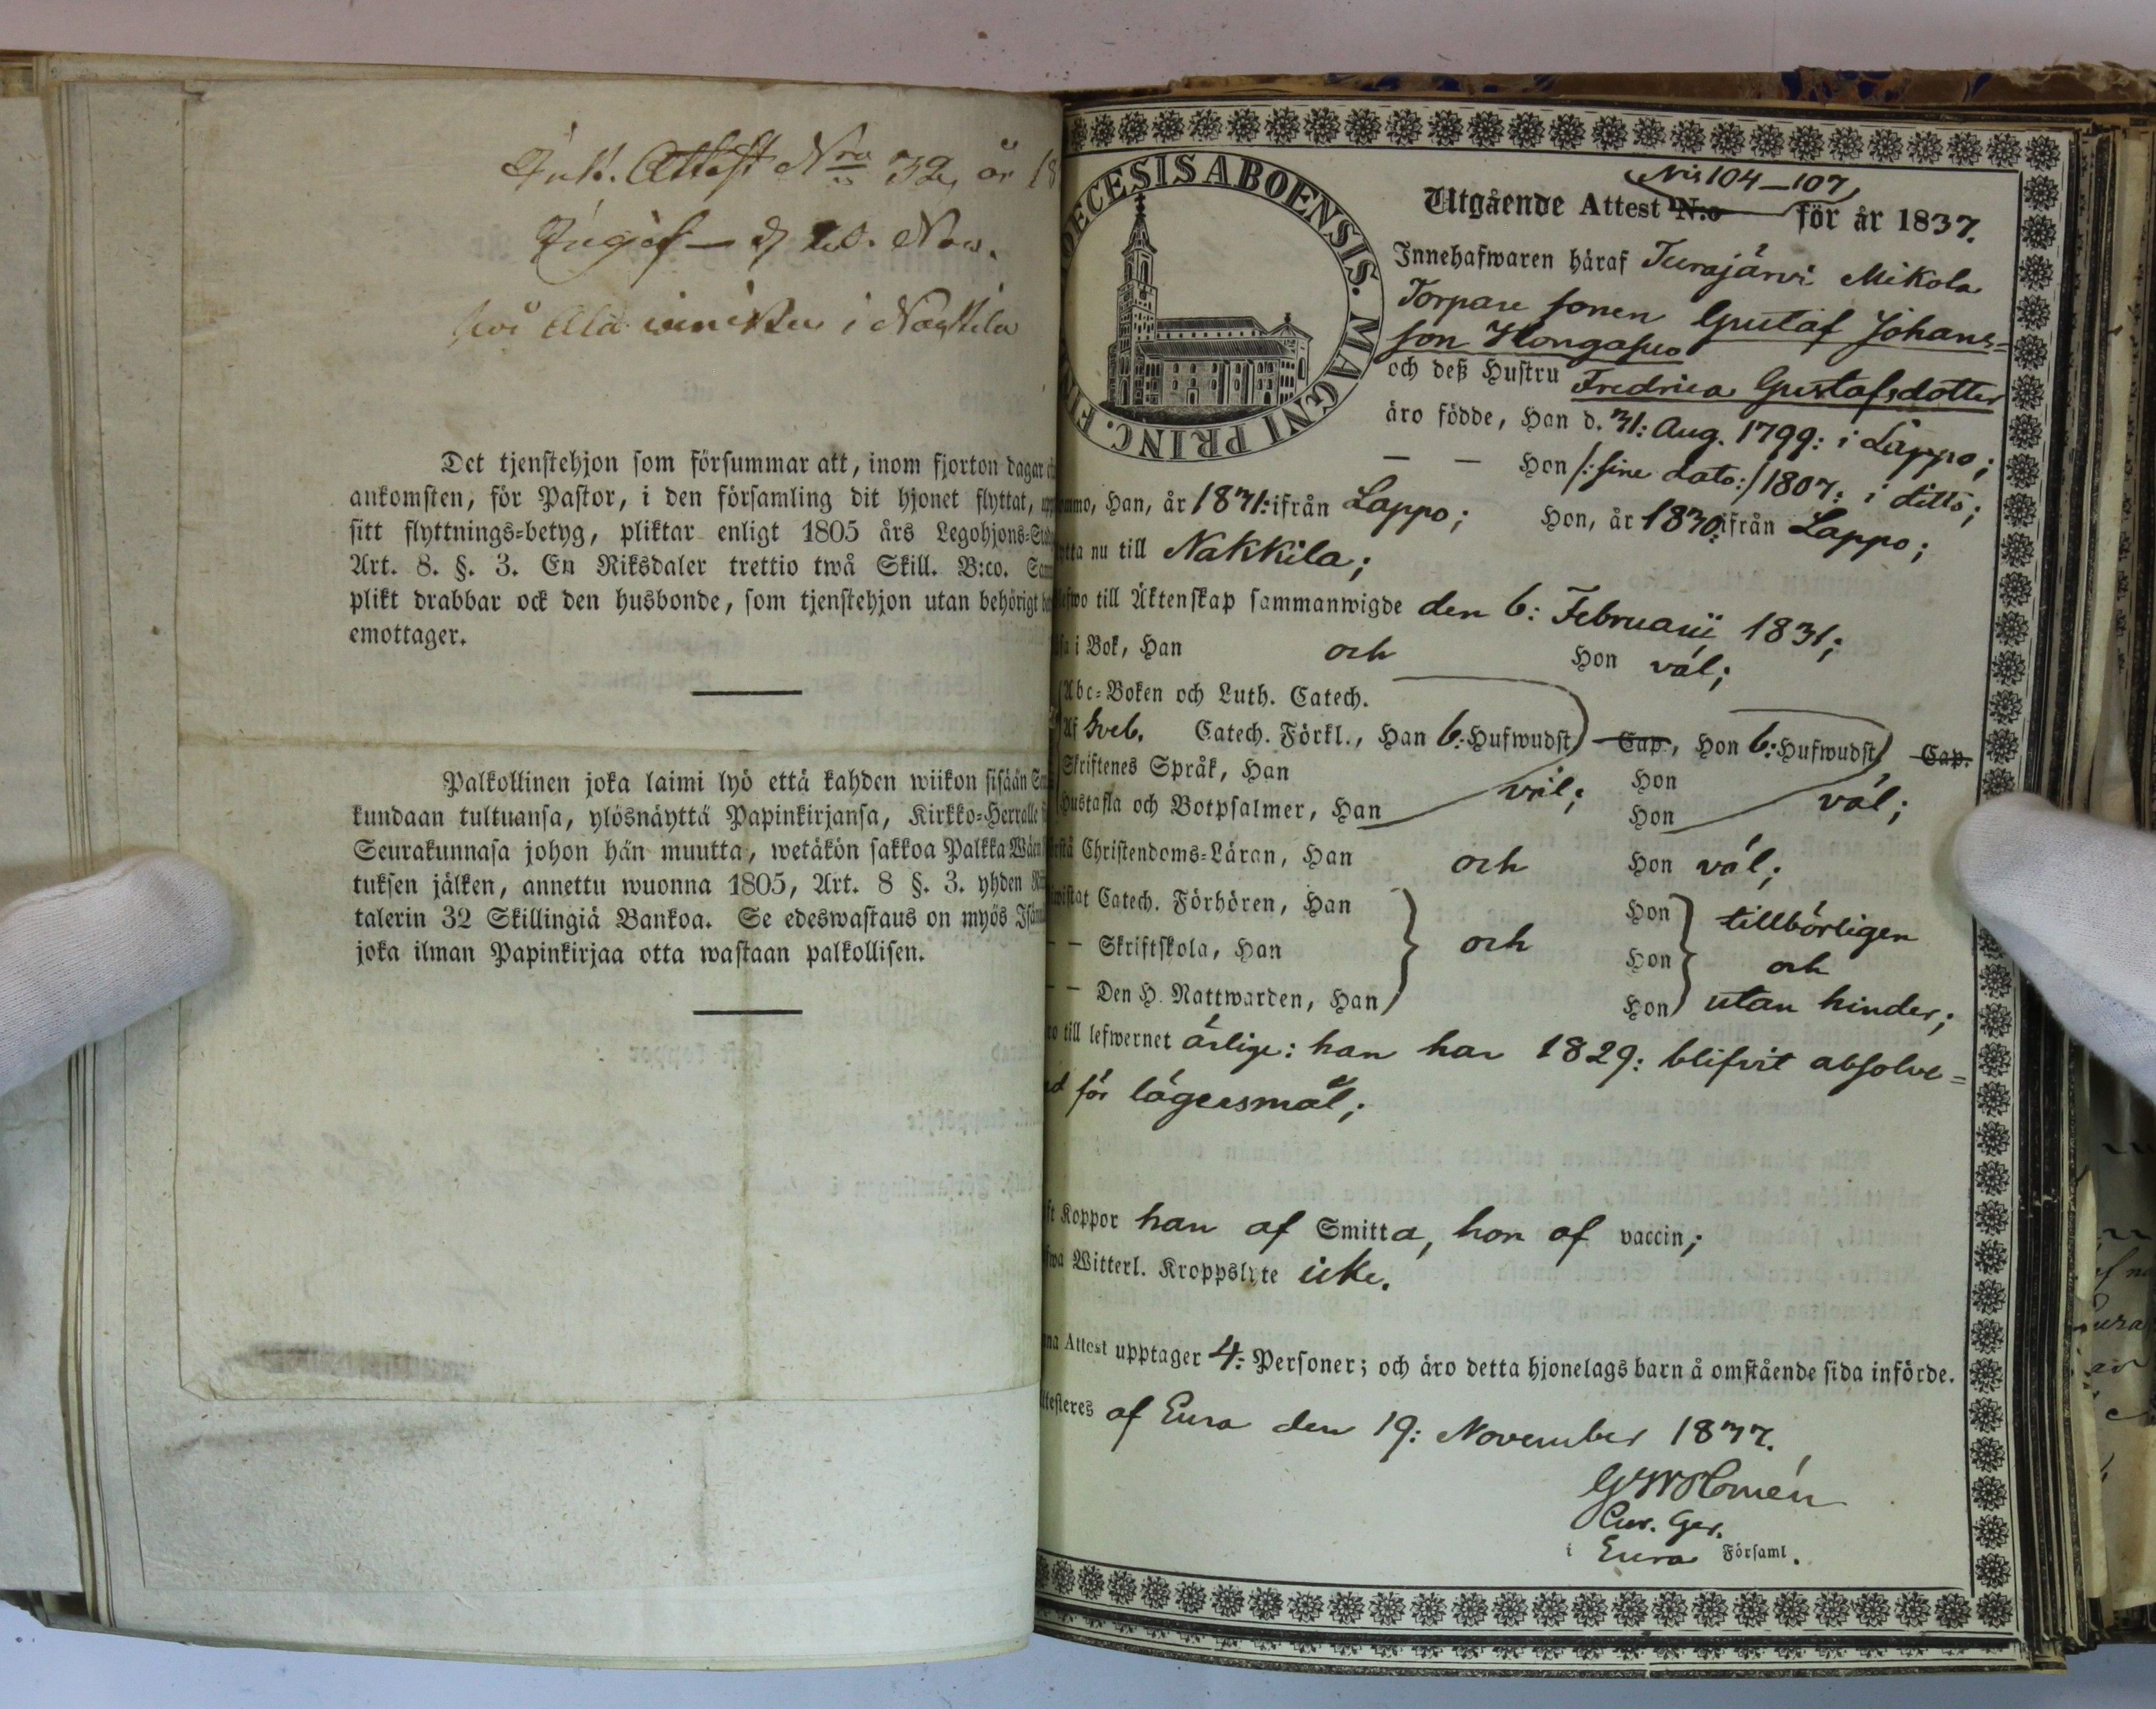 Ink. Attest Nro 32, år 18
Ingif d 20. Nov.
i Nackila
Det tjenstehjon som försummar att, inom fjorton dagar
ankomsten, för Pastor, i den församling dit hjonet flyttat,
sitt flyttnings-betyg, pliktar enligt 1805 års Legohjons-
Art. 8. §. 3. En Riksdaler trettio twå Skill. B:co.
plikt drabbar ock den husbonde, som tjenstehjon utan behörigt
emottager.
Palkollinen joka laimi lyö että kahden wiikon sisään
kundaan tultuansa, ylösnäyttä Papinkirjansa, Kirkko-Herralle
Seurakunnasa johon hän muutta, wetäkön sakkoa Palkka
tuksen jälken, annettu wuonna 1805, Art. 8 §. 3. yhden
talerin 32 Skillingiä Bankoa. Se edeswastaus on myös
joka ilman Papinkirjaa otta wastaan palkollisen.
DECESIS ABOENSIS. MAGNI PRINC. FI
Nris 104–107,
Utgående Attest N:o för år 1837.
Innehafwaren häraf Turajärvi Mikola
Torpare sonen Gustaf Johans-
son Hongasuo
och deß Hustru Fredrica Gustafsdotter
äro födde, Han d. 31: Aug. 1799: i Lappo;
— — Hon /: sine dato:/ 1807: i ditto;
mmo, Han, år 1831: ifrån Lappo; Hon, år 1830: ifrån Lappo;
tta nu till Nakkila;
efwo till Äktenskap sammanwigde den 6: Februarii 1831;
sa i Bok, Han och Hon väl;
Abc-Boken och Luth. Catech.
Af Sveb. Catech. Förkl., Han 6: Hufwudst Cap., Hon 6: Hufwudst Cap.
Skriftenes Språk, Han väl; Hon väl;
Hustafla och Botpsalmer, Han Hon
rstå Christendoms-Läran, Han och Hon väl;
wistat Catech. Förhören, Han Hon tillbörligen
— — Skriftskola, Han och Hon och
— — Den H. Nattwarden, Han Hon utan hinder;
ro till lefwernet ärlige: han har 1829: blifvit absolve-
rad för lägersmål;
ft Koppor han af Smitta, hon af vaccin;
fwa Witterl. Kroppslyte icke.
na Attest upptager 4: Personer; och äro detta hjonelags barn å omstående sida införde.
Attesteres af Eura den 19: November 1837.
G W Homén
Cur. Ger.
i Eura Församl.